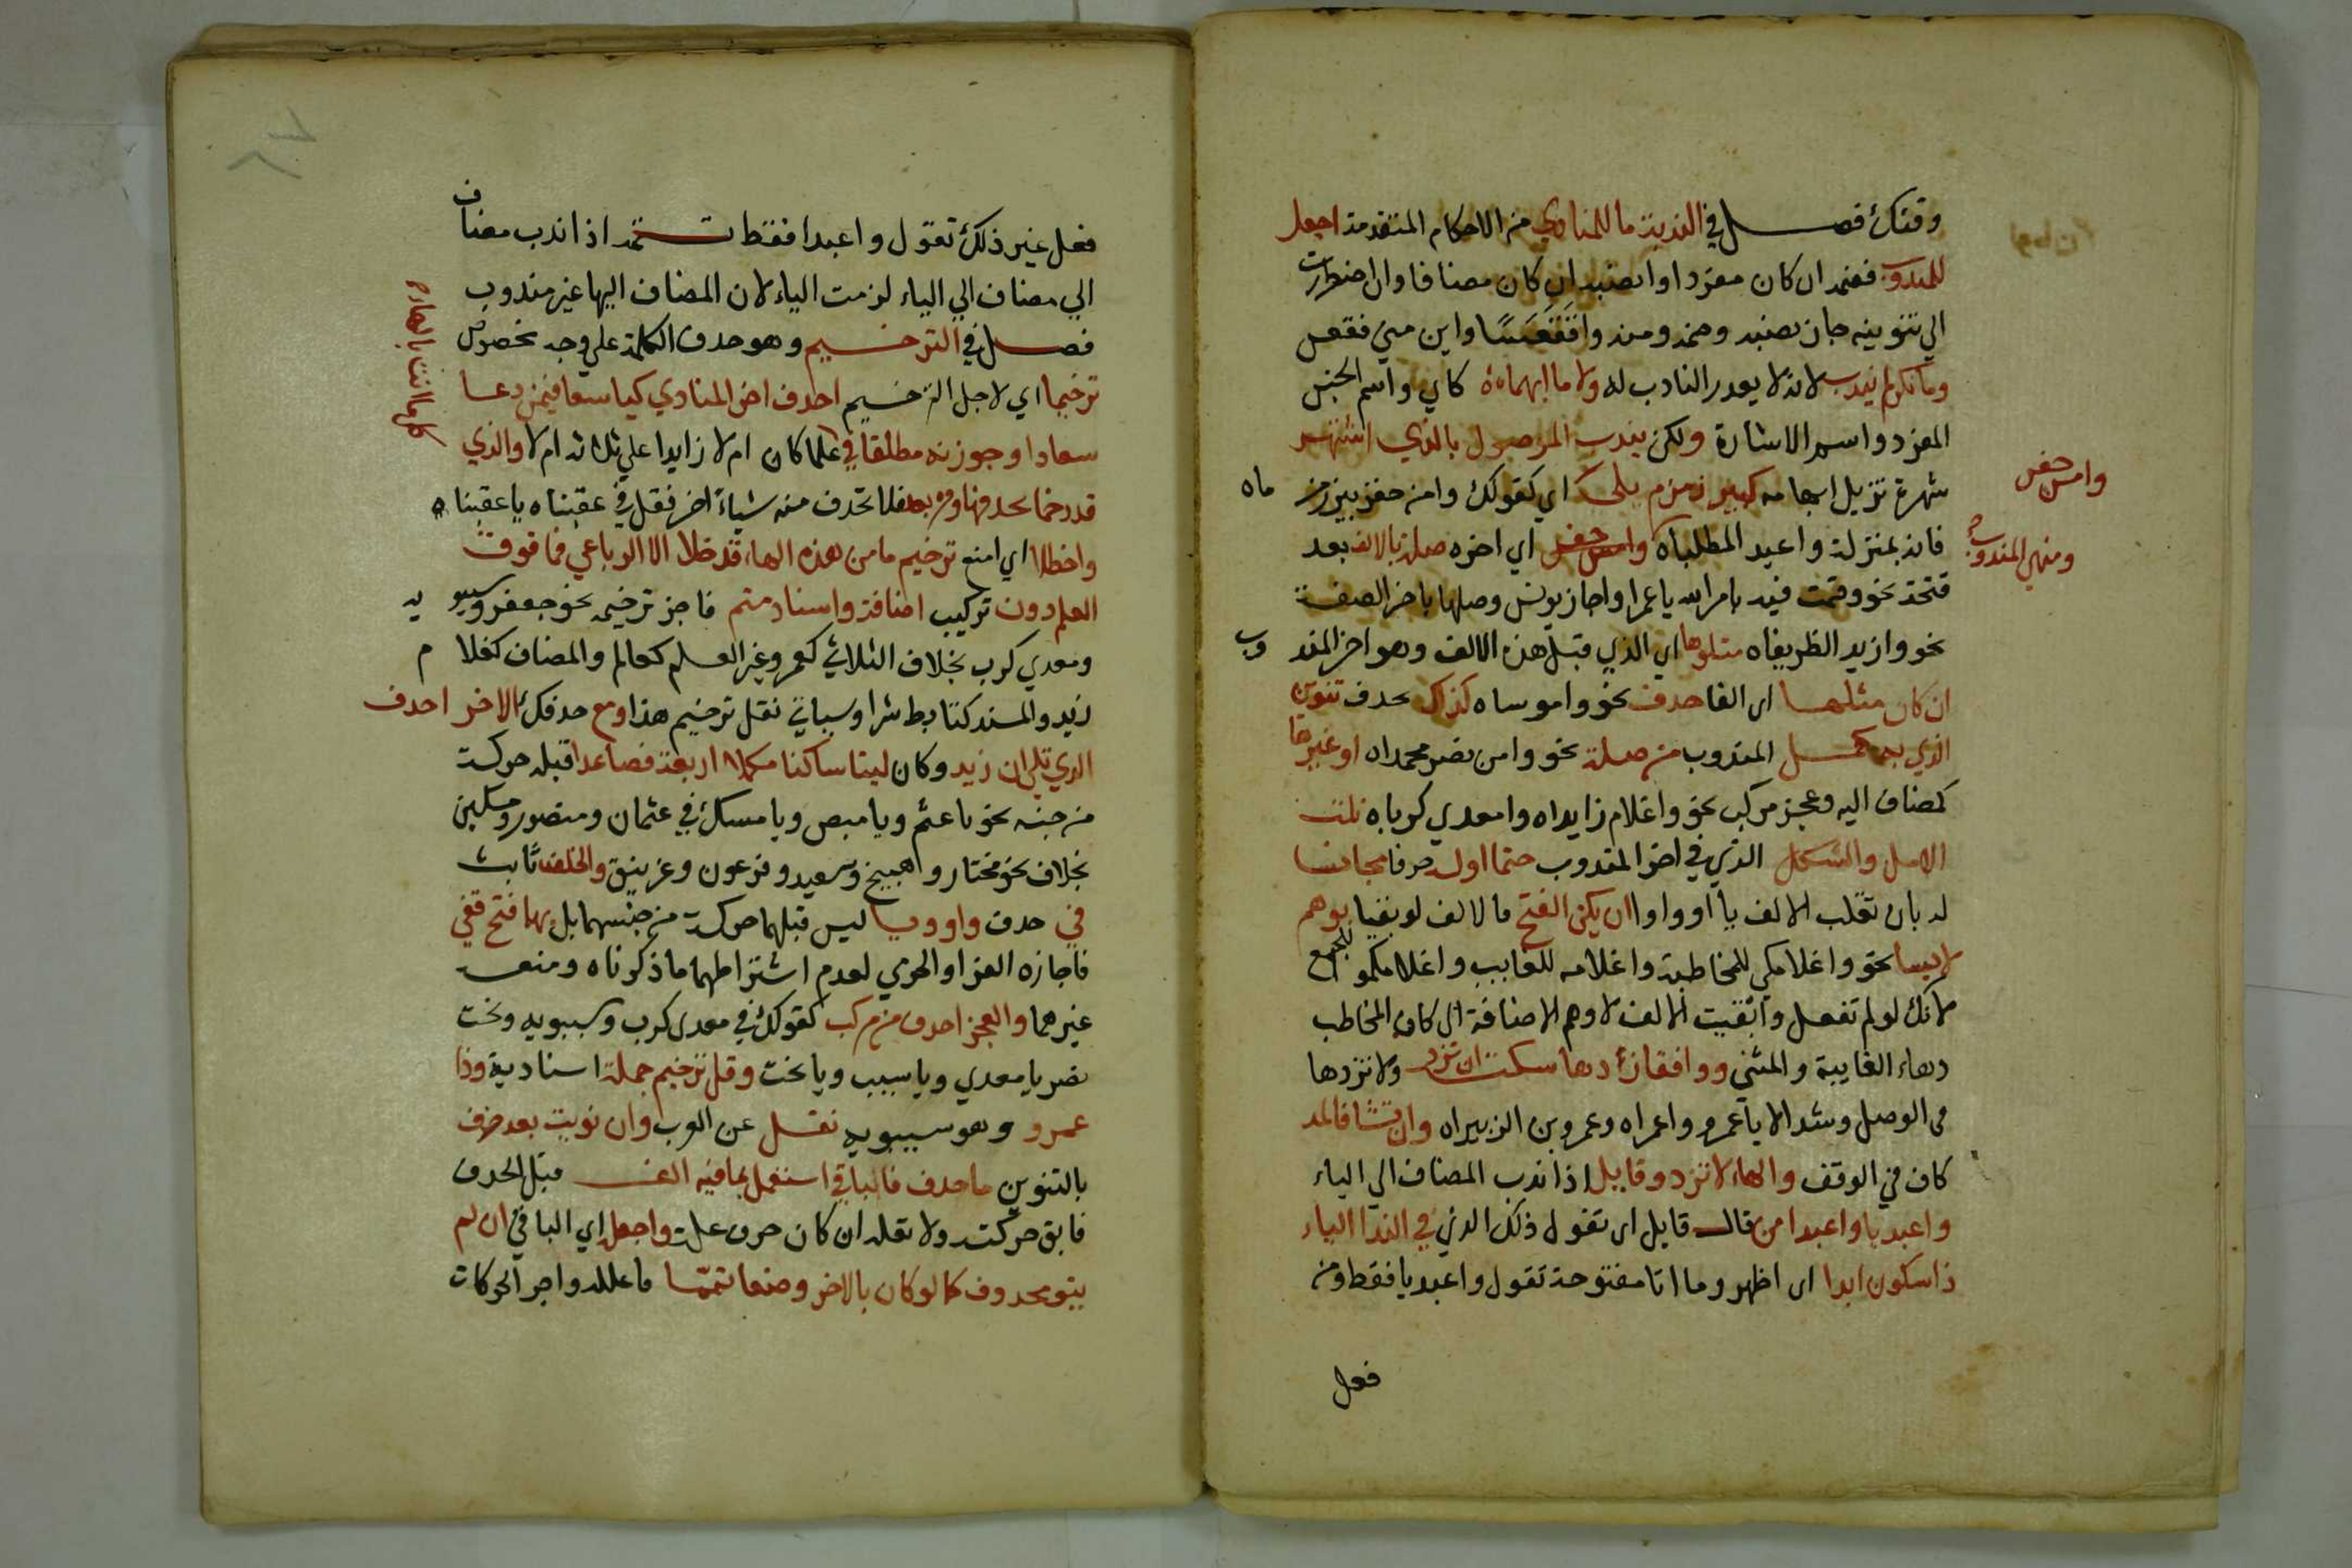 وقتك فصل في الندبة ما للمنادي من الاحكام المتقدمة اجعل
للمندوب فضمه ان كان مفردا وانصبه ان كان مضافا وان اضطررت
الي تنوينه جاز نصبه وضمه ومنه وافقعسا واين مني فقعس
وما نكر لم يندب لانه لا يعذر النادب له ولا ما ابهما كاي واسم الجنس
المفرد واسم الاشارة ولكن يندب الموصول بالذي اشتهر
شهرة تزيل ابهامه كبير زمزم يلي اي كقولك وامن حفر بير زمز ماه
وامن حفر
فانه بمنزلة واعبد المطلباه وامن حفر اي اخره صله بالالف بعد
ومنتهي المندوب
فتحة نحو وقمت فيه بامر الله يا عمرا واجاز يونس وصلها باخر الصفة
نحو وازيد الظريفاه متلوها اي الذي قبل هذه الالف وهو اخر المند وب
ان كان مثلها اي الفا حذف نحو واموساه كذاك يحذف تنوين
الذي به كمل المندوب من صلة نحو وامن نصر محمداه او غيرها
كمضاف اليه وعجز مركب نحو واغلام زايداه وامعدي كرباه نلت
الامل والشكل الذي في اخر المندوب حتما اوله حرفا مجانسا
له بان تقلب الالف يا او واوا ان يكن الفتح مالالف لو بقيا بوهم
لابسا نحو واغلامكي للمخاطبة واغلامه للغايب واغلامكمو للجمع
لانك لو لم تفعل وابقيت الالف لاوهم الاضافة الي كاف المخاطب
وهاء الغايبة والمثني وواقفا زد ها سكت ان ترد ولا تزدها
في الوصل وشذ الا يا عمرو واعمراه وعمرو بن الزبيراه وان تشا فالمد
كاف في الوقف والهاء لا تزد وقايل اذا ندب المضاف الي الياء
واعبديا واعبدا من قال قايل اي تقول ذلك الذي في الندا الياء
ذا سكون ابدا اي اظهر وما اتا مفتوحة تقول واعبديا فقط ومن
فعل
فعل غير ذلك تقول واعبدا فقط تتمه اذا ندب مضاف
الي مضاف الي الياء لزمت الياء لان المضاف اليها غير مندوب
فصل في الترخيم وهو حذف الكلمة علي وجه مخصوص
ترخيما اي لاجل الترخيم احذف اخر المنادي كيا سعا فيمن دعا
سعادا وجوزنه مطلقا في كلما انث بالهاء علما كان ام لا زايدا علي ثلاثه ام لا والذي
قد رخما بحذفها وفره بعد فلا تحذف منه شيأ اخر فقل في عقبناه يا عقبنا ه
واخظلا اي امنع ترخيم ما من هذه الها قد خلا الا الرباعي فما فوق
العلم دون تركيب اضافة واسناد متم فاجز ترخيمه نحو جعفر وسيبو يه
ومعدي كرب بخلاف الثلاثي كعمر وغير العلم كعالم والمضاف كغلا م
زيد والمسند كتابط شرا وسياتي نقل ترخيم هذا ومع حذفك الاخر احذف
الذي تلا ان زيد وكان لينا ساكنا مكملا اربعة فصاعدا قبله حركة
من جنسه نحو يا عثم ويا منص ويا مسك في عثمان ومنصور ومسكين
بخلاف نحو مختار وهبيخ وسعيد وفرعون وغرنيق والخلف ثابت
في حذف واو ويا ليس قبلهما حركة من جنسهما بل بهما فتح قفي
فاجازه الفرا والجرمي لعدم اشتراطهما ما ذكرناه ومنعه
غيرهما والعجز احذف من مركب كقولك في معدي كرب وسيبويه وبخت
نصر يا معدي ويا سيب ويا بخت وقل ترخيم جملة اسنادية وذا
عمرو وهو سيبويه نقل عن العرب وان نويت بعد حذف
بالتنوين ما حذف فالباقي استعمل بما فيه الف قبل الحذف
فابق حركته ولا تعله ان كان حرف علة واجعله اي الباقي ان لم
ينو محذوف كما لو كان بالاخر وضعا تمما فاعلله واجر الحركات